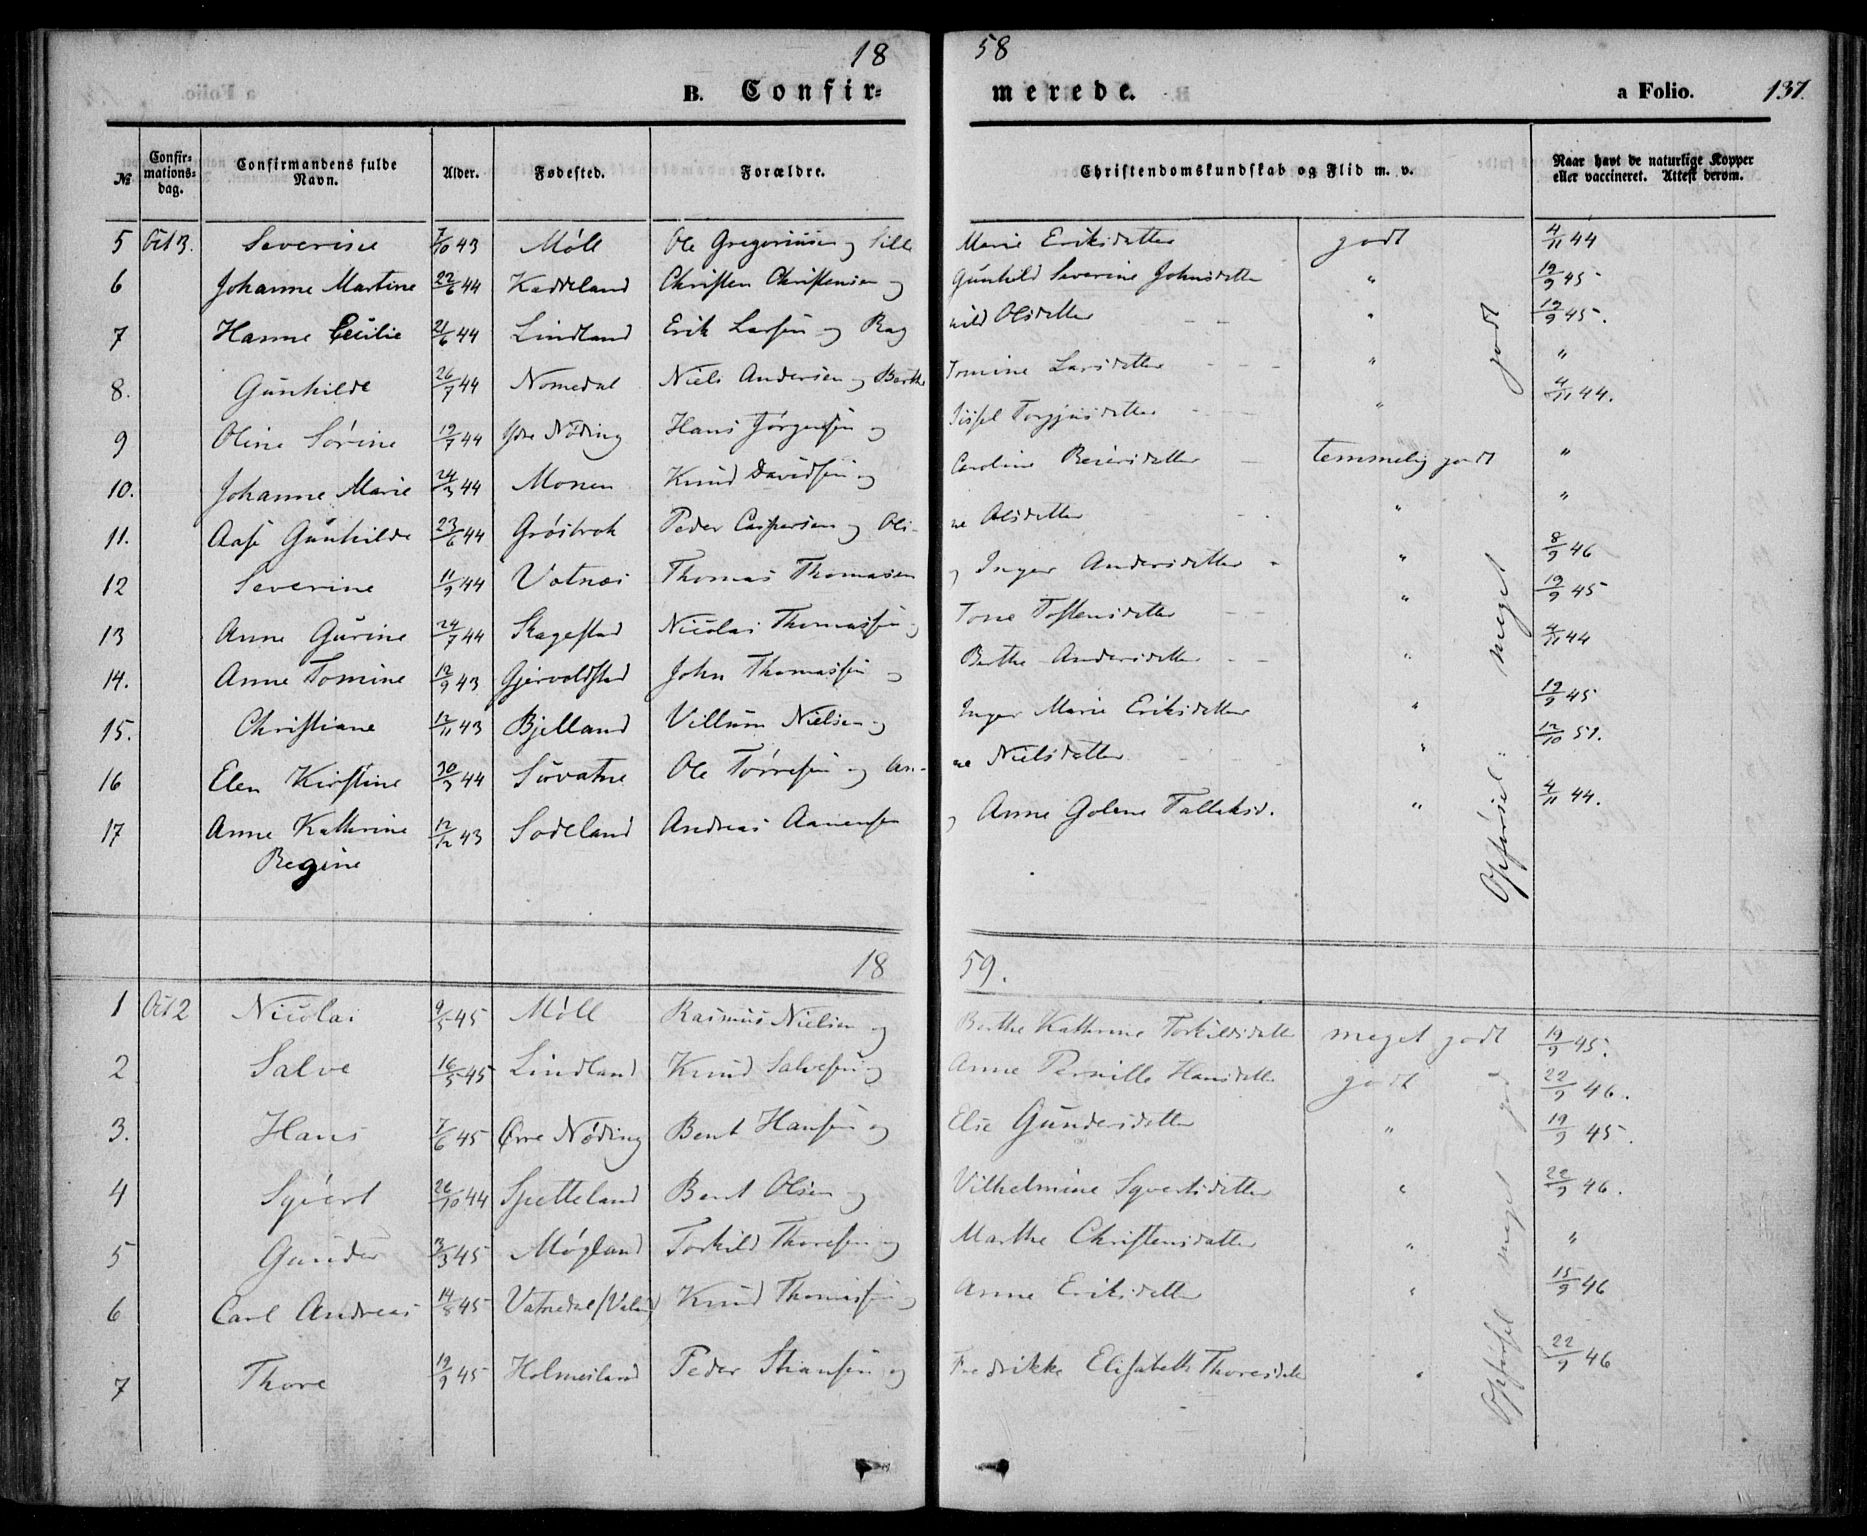 18 58
B. Confir- merede. a Folio. 137.
№ Confir-mations-dag. Confirmandens fulde Navn. Alder. Fødested. Forældre. Christendomskundskab og Flid m. v. Naar havt de naturlige Kopper eller vaccineret. Attest derom.
5 Oct 3. Severine 7/10 43 Möll Ole Gregoriusen og Sille Marie Eriksdatter godt 4/11 44
6 Johanne Martine 22/6 44 Kaddeland Christen Christensen og Gunhild Severine Johnsdatter " 19/9 45
7 Hanne Cecilie 21/6 44 Lindland Erik Larsen og Rag hild Olsdatter " 19/9 45.
8. Gunhilde 26/7 44 Nomedal Niels Andersen og Berthe Tomine Larsdatter " "
9 Oline Sørine 19/7 44 Ydre Nöding Hans Jørgensen og Sissel Torgjusdatter " 4/11 44.
10. Johanne Marie 24/3 44 Monen Knud Davidsen og Caroline Beiersdatter temmelig godt "
11. Aase Gunhilde 23/6 44 Gröstrok Peder Caspersen og Oli- ne Olsdatter " "
12 Severine 11/9 44 Votnæs Thomas Thomasen og Inger Andersdatter " 8/9 46
13 Anne Gurine 24/7 44 Skagestad Nicolai Thomassen og Tone Tostensdatter " 19/9 45
14. Anne Tomine 12/9 43 Gjervoldstad John Thomassen og Berthe Andersdatter " 4/11 44
15. Christiane 12/11 43 Bjelland Villum Nielsen og Inger Marie Eriksdatter " 19/9 45
16 Elen Kirstine 30/3 44 Sørvatne Ole Törresen og An- ne Nielsdatter " 12/10 51.
17 Anne Kathrine 12/12 43 Sodeland Andreas Aanensen og Anne Golene Tallaksd. " 4/11 44.
Regine
Opførsel: meget godt
18 59.
1 Oct 2 Nicolai 9/5 45 Möll Rasmus Nielsen og Berthe Kathrine Torkildsdatter meget godt 19/9 45.
2 Salve 16/5 45 Lindland Knud Salvesen og Anne Pernille Hansdatter godt 22/9 46.
3. Hans 7/6 45 Øvre Nöding Bent Hansen og Else Gundersdatter " 19/9 45.
4 Syvert 26/10 44 Spetteland Bent Olsen og Vilhelmine Syvertsdatter " 22/9 46.
5 Gunder 3/3 45 Møgland Torkild Thoresen og Marthe Christensdatter " "
6 Carl Andreas 14/8 45 Vatnedal Knud Thomassen og Anne Eriksdatter " 15/9 46
7 Thore 19/9 45 Holmesland Peder Stiansen og Fredrikke Elisabeth Thoresdatt " 22/9 46
Opførsel meget god